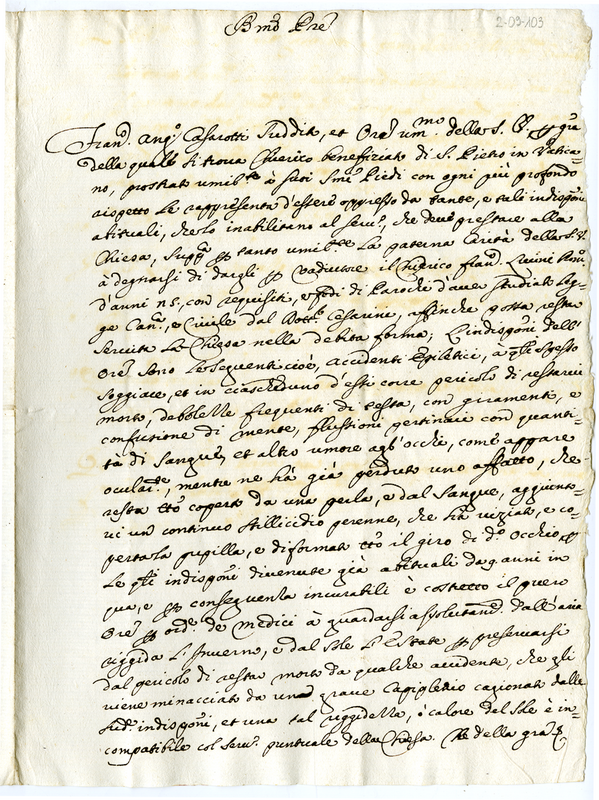 Bmo Pre
2-09-103
Fran.o Ang.o Casarotti Suddito, et Ore um.mo della S. V. p gra
della quale si trova Chierico benefiziato di S. Pietro in Vatica=
no, prostrato umilte à suoi Smi Piedi con ogni più profondo
rispetto Le rappresenta d'essere oppresso da tante, e tali indisponi
abituali, che lo inabilitano al serv.o, che deve prestare alla
Chiesa, supp.a p tanto umilte La paterna Carità della S. V.
à degnarsi di dargli p Coadiutore il Chierico Fran.o
d'anni con requisiti, e fedi di Parochi d'aver studiato Leg=
ge Can.a, e Civile dal Dott.e Cesarini, affinche possa restar
servita La Chiesa nella debita forma; L'indisponi dell'
Ore sono Le seguenti cioè, accidenti Epiletici, a qli spesso
soggiace, et in ciascheduno d'essi corre pericolo di restarvi
morto, debolezze frequenti di testa, con giramenti, e
confusione di mente, flussioni pertinaci con quanti=
tà di sangue, et altro umore agl'occhi, come appare
ocularte, mentre ne hà già perduto uno affatto, che
resta tto coperto da una perla, e dal sangue, aggiunto=
vi un continuo stillicidio perenne, che hà viziato, e co=
perta la pupilla, e diformato tto il giro di d.o occhio, p
Le qli indisponi divenute già abituali da 9. anni in
qua, e p conseguenza incurabili è costretto il povero
Ore p ord.e de Medici à guardarsi assolutame dall'aria
riggida L'Inverno, e dal Sole L'Estate p preservarsi
dal pericolo di restar morto da qualche accidente, che gli
viene minacciato da una grave capipletio cagionato dalle
sud.e indisponi, et una tal riggidezza, ò calore del Sole è in=
compatibile col serv.o puntuale della Chiesa. Che della gra